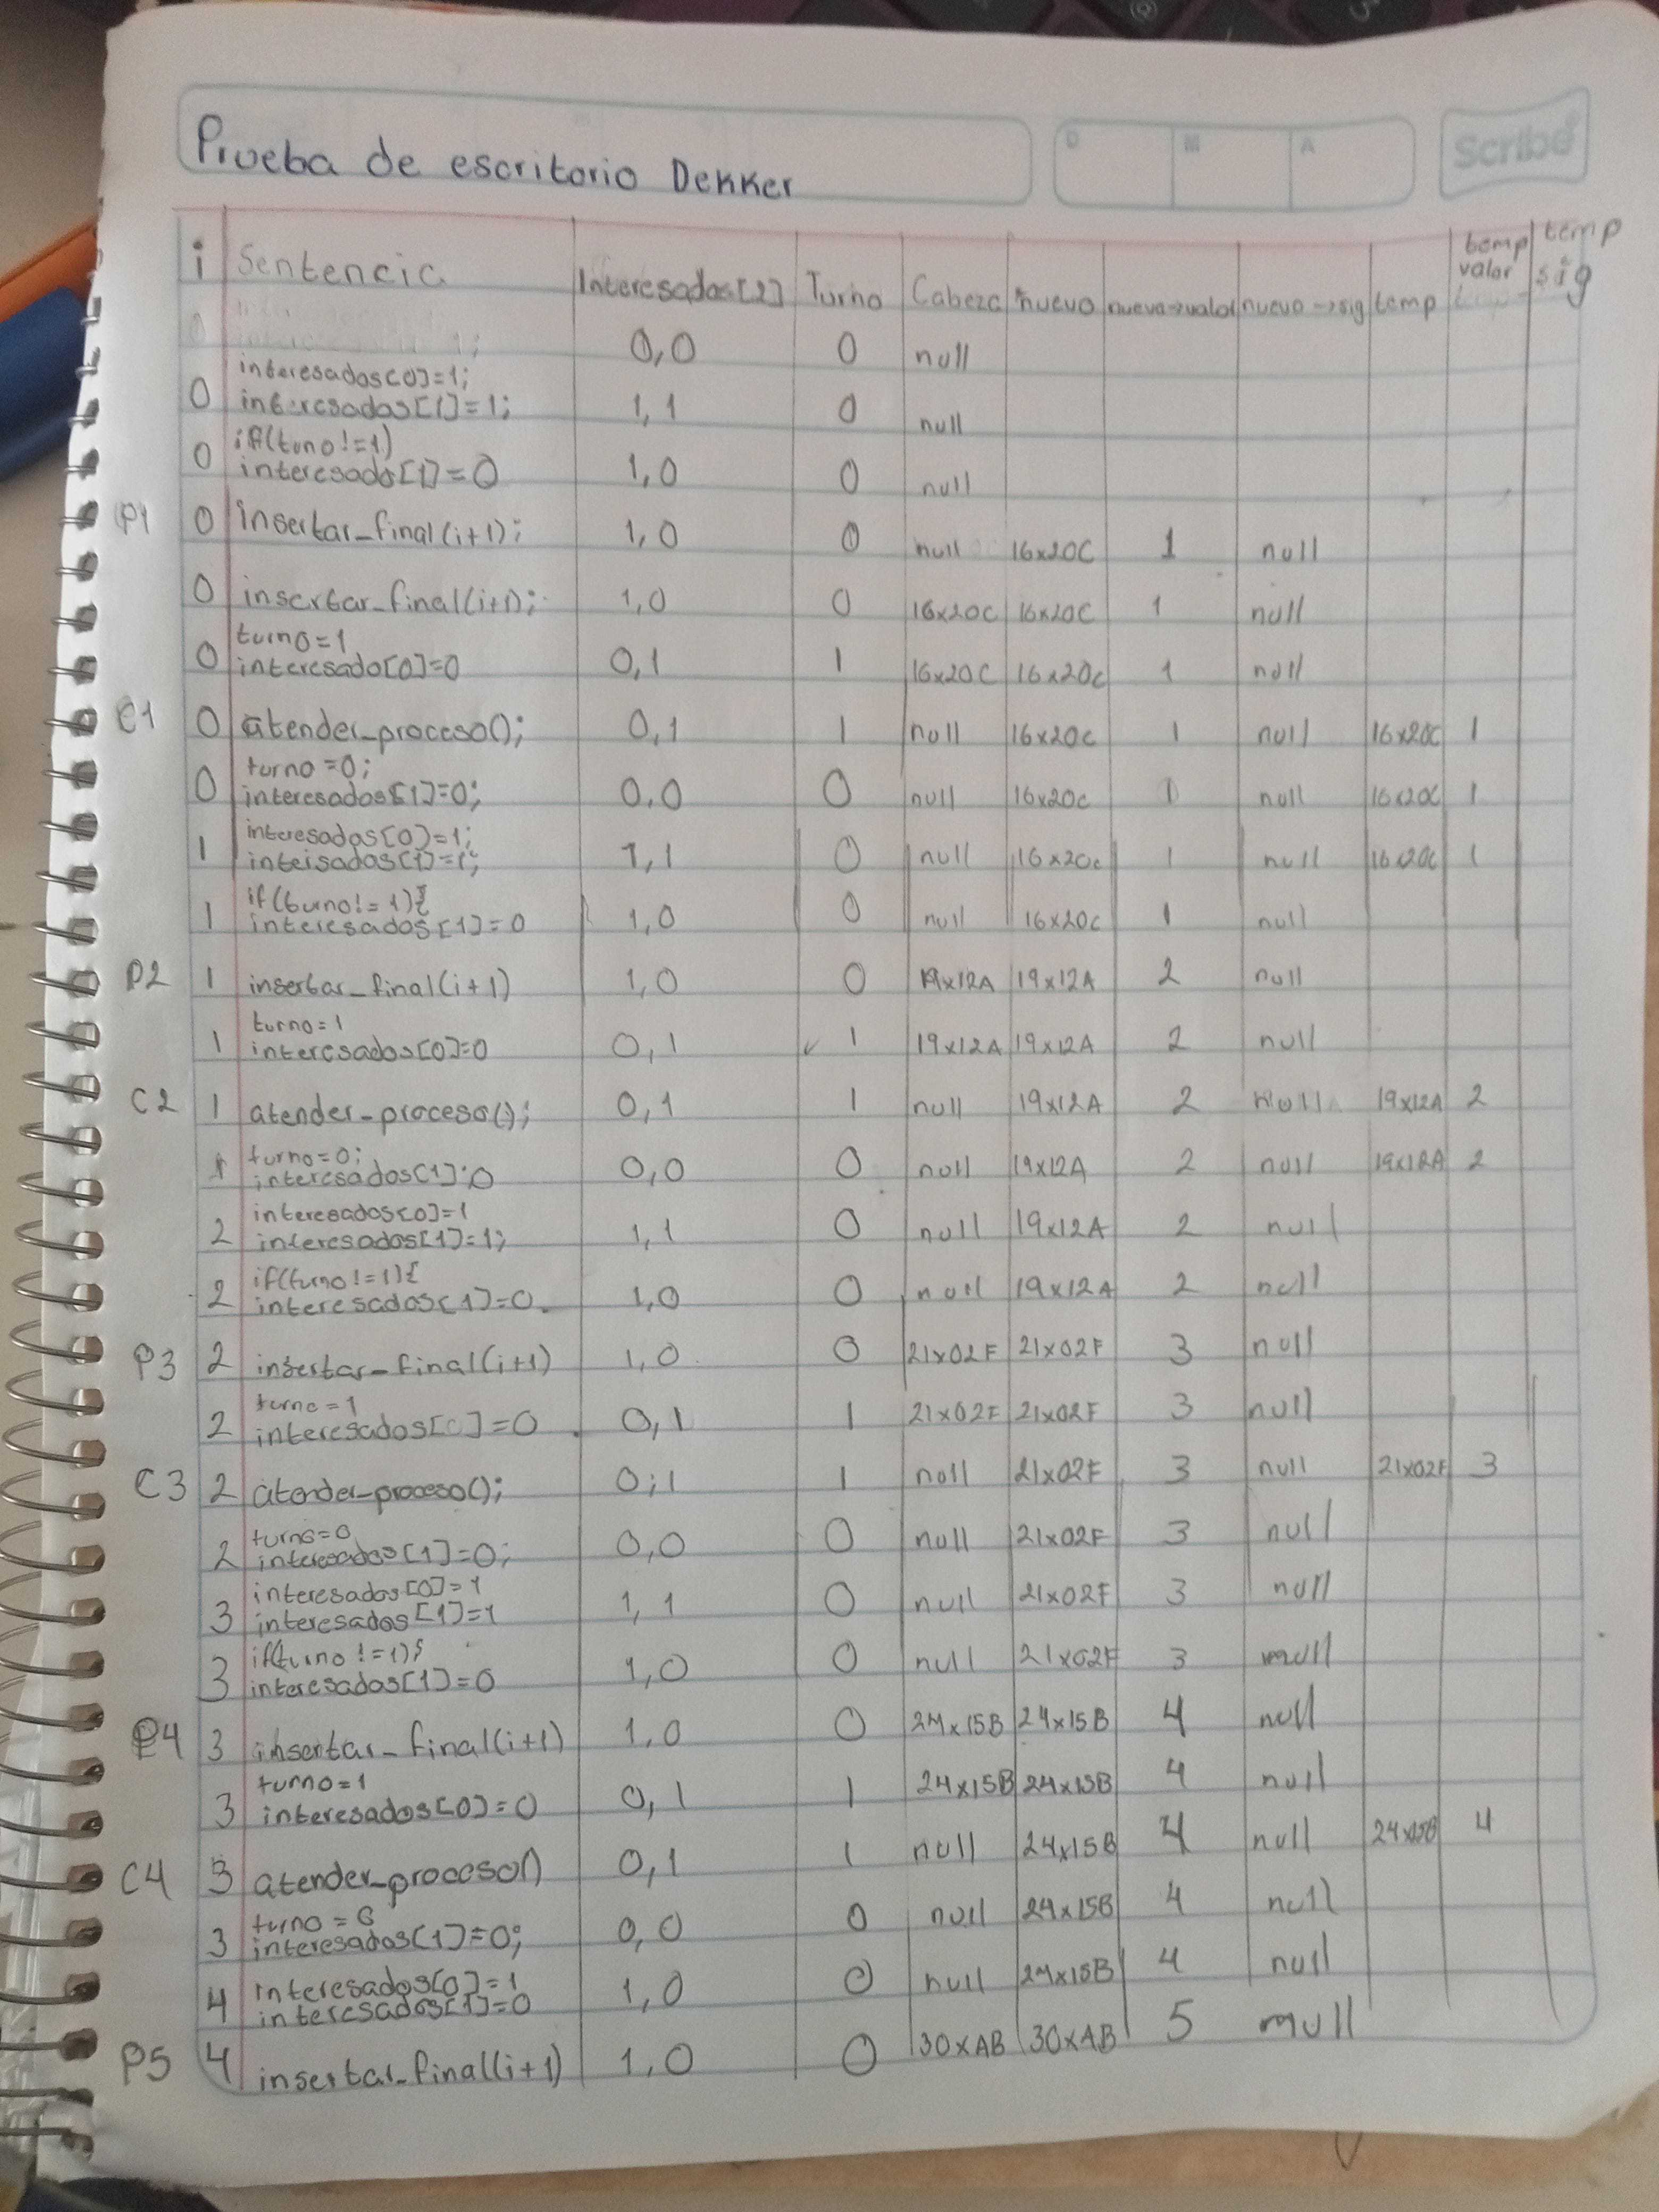 Prueba de escritorio Dekker
D M A
Scribe
i Sentencia Interesados[2] Turno Cabeza nuevo nuevo→valor nuevo→sig temp temp valor temp sig
0,0 0 null
interesados[0]=1;
0 interesados[1]=1; 1,1 0 null
if(tuno!=1)
0 interesado[1]=0 1,0 0 null
P1 0 insertar_final(i+1); 1,0 0 null 16x20C 1 null
0 insertar_final(i+1); 1,0 0 16x20C 16x20C 1 null
turno=1
0 interesado[0]=0 0,1 1 16x20C 16x20c 1 null
C1 0 atender_proceso(); 0,1 1 null 16x20c 1 null 16x20C 1
turno=0;
0 interesados[1]=0; 0,0 0 null 16x20c 1 null 16x20C 1
interesados[0]=1;
1 inteisados[1]=1; 1,1 0 null 16x20c 1 null 16x20C 1
if(turno!=1){
1 interesados[1]=0 1,0 0 null 16x20c 1 null
P2 1 insertar_final(i+1) 1,0 0 19x12A 19x12A 2 null
turno=1
1 interesados[0]=0 0,1 1 19x12A 19x12A 2 null
C2 1 atender_proceso(); 0,1 1 null 19x12A 2 null 19x12A 2
turno=0;
1 interesados[1]=0 0,0 0 null 19x12A 2 null 19x12A 2
interesados[0]=1
2 interesados[1]=1; 1,1 0 null 19x12A 2 null
if(turno!=1){
2 interesados[1]=0. 1,0 0 null 19x12A 2 null
P3 2 insertar_final(i+1) 1,0 0 21x02F 21x02F 3 null
turno=1
2 interesados[0]=0 0,1 1 21x02F 21x02F 3 null
C3 2 atender_proceso(); 0,1 1 null 21x02F 3 null 21x02F 3
turno=0
2 interesados[1]=0; 0,0 0 null 21x02F 3 null
interesados[0]=1
3 interesados[1]=1 1,1 0 null 21x02F 3 null
if(turno!=1){
3 interesados[1]=0 1,0 0 null 21x02F 3 null
P4 3 insertar_final(i+1) 1,0 0 24x15B 24x15B 4 null
turno=1
3 interesados[0]=0 0,1 1 24x15B 24x15B 4 null
C4 3 atender_proceso() 0,1 1 null 24x15B 4 null 24x15B 4
turno=0
3 interesados[1]=0; 0,0 0 null 24x15B 4 null
interesados[0]=1
4 interesados[1]=0 1,0 0 null 24x15B 4 null
P5 4 insertar_final(i+1) 1,0 0 30xAB 30xAB 5 null